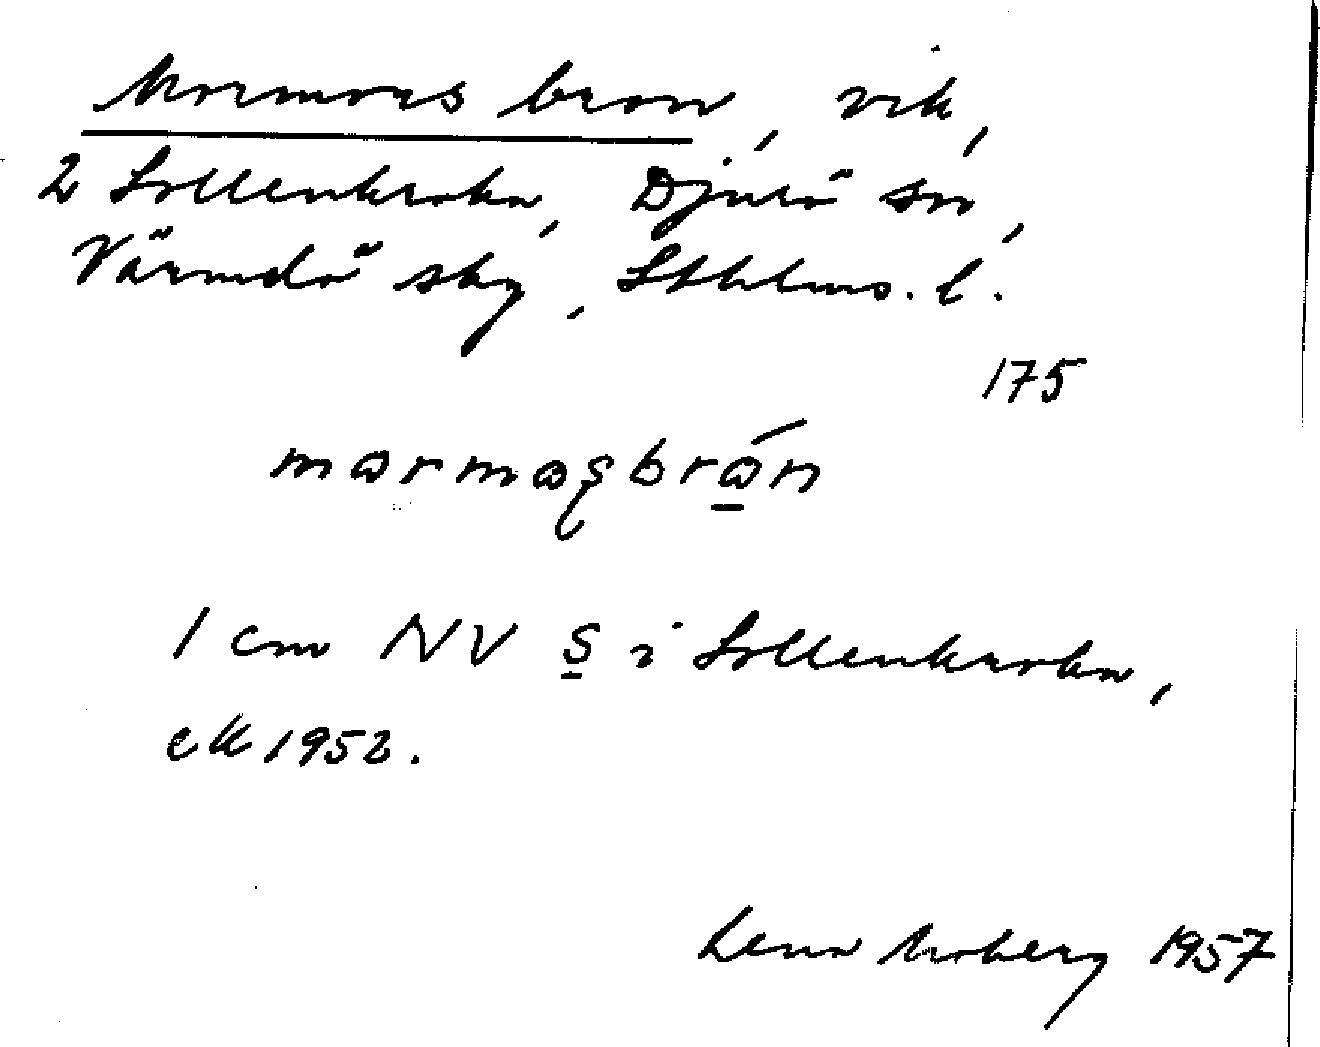 Mormors bron, vik,
2 Sollenkroka, Djurö sn,
Värmdö sky, Sthlms. l.
175
mormosbrón
1 cm NV S i Sollenkroka,
ek 1952.
Lena Moberg 1957